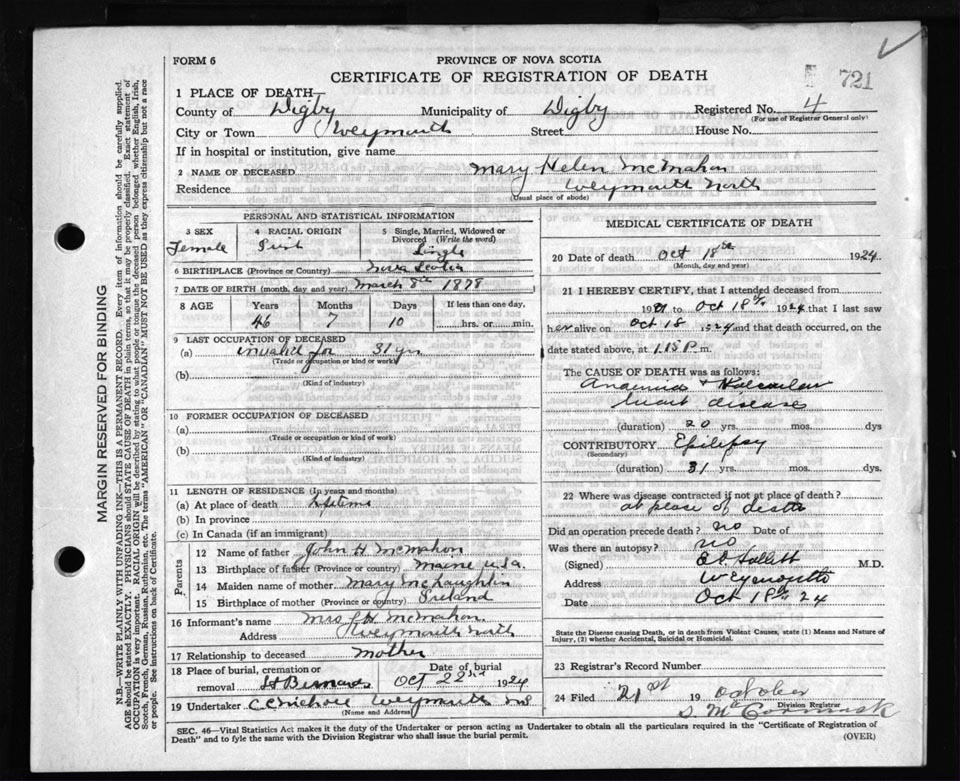 FORM 6
PROVINCE OF NOVA SCOTIA
CERTIFICATE OF REGISTRATION OF DEATH
721
1 PLACE OF DEATH
County of Digby Municipality of Digby Registered No. 4
(For use of Registrar General only)
City or Town Weymouth Street House No.
If in hospital or institution, give name
2 NAME OF DECEASED Mary Helen McMahon
Residence Weymouth North
(Usual place of abode)
PERSONAL AND STATISTICAL INFORMATION
3 SEX 4 RACIAL ORIGIN 5 Single, Married, Widowed or Divorced (Write the word)
Female Irish Single
6 BIRTHPLACE (Province or Country) Nova Scotia
7 DATE OF BIRTH (month, day and year) March 8th 1878
8 AGE Years Months Days If less than one day,
46 7 10 hrs. or min.
9 LAST OCCUPATION OF DECEASED
(a) invalid for 31 yrs
(Trade or occupation or kind of work)
(b)
(Kind of industry)
10 FORMER OCCUPATION OF DECEASED
(a)
(Trade or occupation or kind of work)
(b)
(Kind of industry)
11 LENGTH OF RESIDENCE (In years and months)
(a) At place of death
(b) In province
(c) In Canada (if an immigrant)
Parents
12 Name of father John H McMahon
13 Birthplace of father (Province or country) Maine U.S.a.
14 Maiden name of mother Mary McLaughlin
15 Birthplace of mother (Province or country) Ireland
16 Informant's name Mrs J H McMahon
Address Weymouth North
17 Relationship to deceased Mother
18 Place of burial, cremation or Date of burial
removal St Bernards Oct 22nd 1924
19 Undertaker Weymouth NS
(Name and Address)
MEDICAL CERTIFICATE OF DEATH
20 Date of death Oct 18th 1924
(Month, day and year)
21 I HEREBY CERTIFY, that I attended deceased from
19 to Oct 18th 1924 that I last saw
her alive on Oct 18 1924 and that death occurred, on the
date stated above, at 1.15 P. m.
The CAUSE OF DEATH was as follows:
Anaemia + Valvular
heart disease
(duration) 20 yrs. mos. dys
CONTRIBUTORY Epilepsy
(Secondary)
(duration) 31 yrs. mos. dys.
22 Where was disease contracted if not at place of death?
at place of death
Did an operation precede death? no Date of
Was there an autopsy? no
(Signed) M.D.
Address Weymouth
Date Oct 18th 24
State the Disease causing Death, or in death from Violent Causes, state (1) Means and Nature of
Injury, (2) whether Accidental, Suicidal or Homicidal.
23 Registrar's Record Number
24 Filed 21st October 19
Division Registrar
SEC. 46—Vital Statistics Act makes it the duty of the Undertaker or person acting as Undertaker to obtain all the particulars required in the "Certificate of Registration of
Death" and to fyle the same with the Division Registrar who shall issue the burial permit.
(OVER)
MARGIN RESERVED FOR BINDING
N.B.—WRITE PLAINLY WITH UNFADING INK—THIS IS A PERMANENT RECORD. Every item of information should be carefully supplied.
AGE should be stated EXACTLY. PHYSICIANS should STATE CAUSE OF DEATH in plain terms, so that it may be properly classified. Exact statement of
OCCUPATION is very important. RACIAL ORIGIN will be described by stating to what people or tongue the deceased person belonged whether English, Irish,
Scotch, French, German, Russian, Ruthenian, etc. The terms "AMERICAN" OR "CANADIAN" MUST NOT BE USED as they express citizenship but not a race
or people. See instructions on back of Certificate.